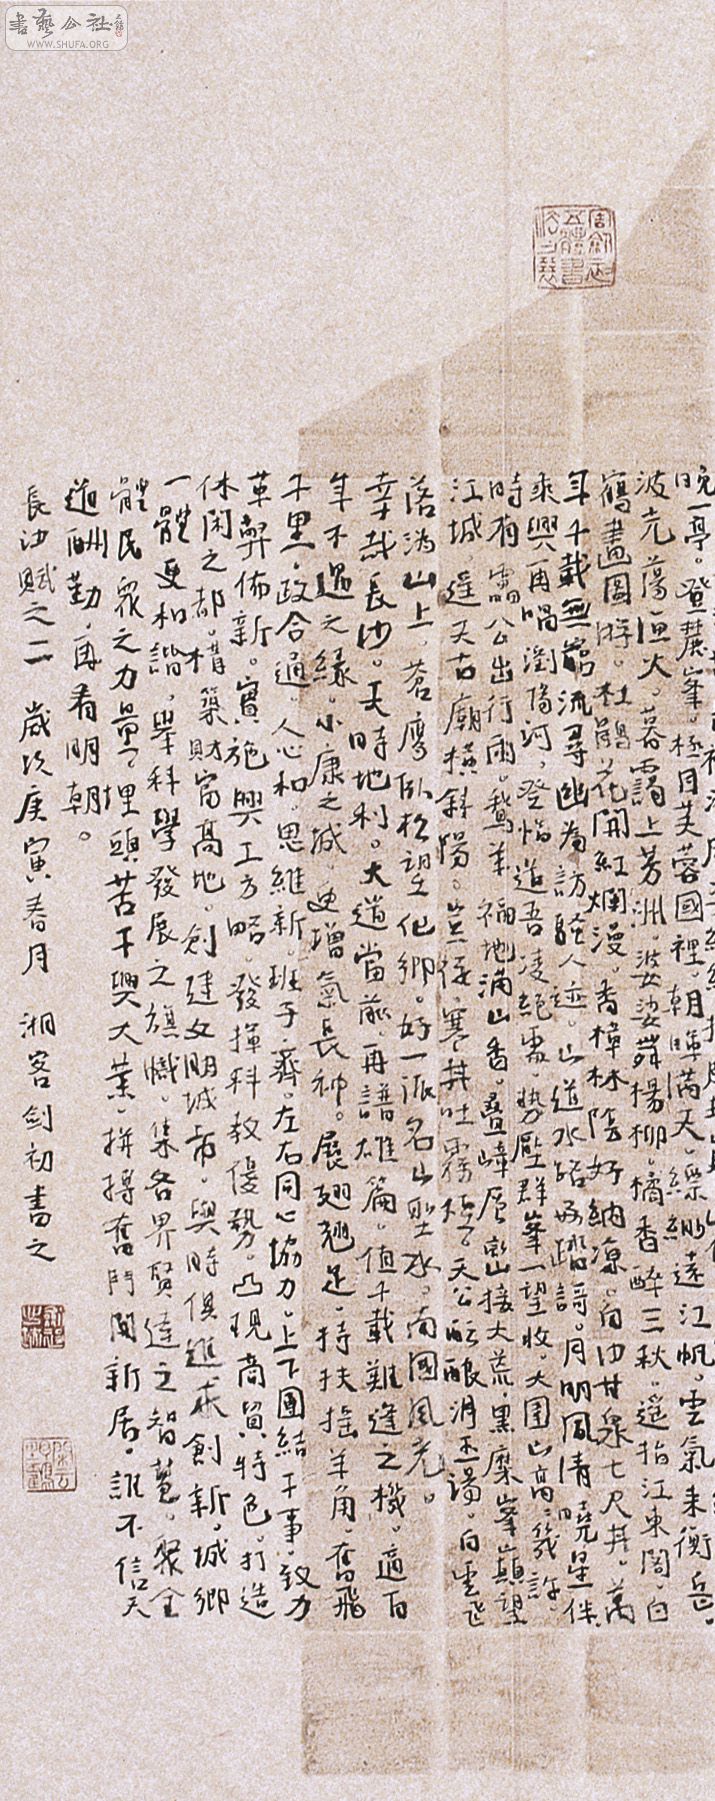 晚亭。登麓峯。極目芙蓉國裡。朝暉滿天。縹緲遠江帆。雲氣來衡岳。
波光蕩漁火。暮靄上芳洲。婆娑舞楊柳。橘香醉三秋。遥指江東閣。白
鶴畫圖游。杜鵑花開紅爛漫。香樟林陰好納凉。白沙甘泉七尺井。萬
年千載無窮流。尋幽為訪騷人迹。山道水路好踏詩。月明風清曉星伴。
乘興再唱瀏陽河。登恒道吾凌絕霄。勢壓群峯一望收。大圍山高幾許。
時有雷公出行雨。鵝羊福地滿山香。疊嶂層巒接大荒。黑糜峯巔望
江城。達天古廟橫斜陽。豈復寒井吐霧煙。天公酩釀湧玉湯。白雲飞
落溈山上。蒼鷹臥松望他鄉。好一派名山聖水。南國風光。
幸哉長沙。天時地利。大道當前。再譜雄篇。值千載難逢之機。適百
年不遇之緣。小康之城。更增氣長神。展翅翹足。持扶摇羊角。奮飛
千里。政合通。人心和。思維新。班子齊。左右同心協力。上下團結干事。致力
革弊佈新。實施興工方略。發揮科教優勢。凸現商貿特色。打造
休閑之都。構築財富高地。創建文明城市。與時俱進求創新。城鄉
一體更和諧。舉科學發展之旗幟。集各界賢達之智慧。聚全
體民眾之力量。埋頭苦干興大業。拼搏奮鬥開新居。誰不信天
道酬勤。再看明朝。
長沙賦之二 歲次庚寅春月 湘客劍初書之
書藝公社
WWW.SHUFA.ORG